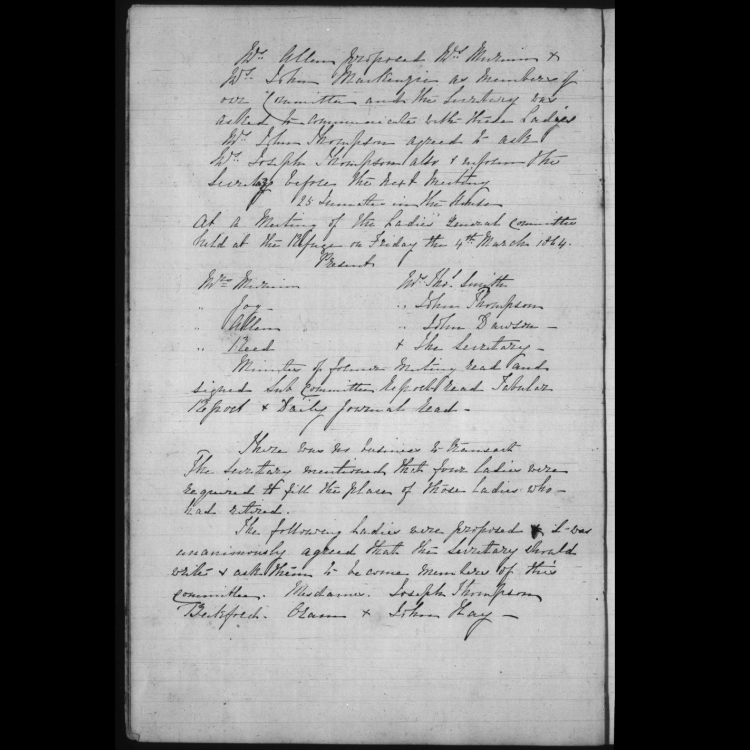 Mrs Allen proposed Mrs Mirrim &
Mrs John Mackenzie as members of
our Committee and the Secretary was
asked to communicate with these Ladies
Mrs John Thompson agreed to ask
Mrs Joseph Thompson also & inform the
Secretary before the next Meeting
25 Inmates in the House
At a Meeting of the Ladies General Committee
held at the Refuge on Friday the 4th March 1864.
Present
Mrs Mirrim Mrs Thos. Smith
" Joy " John Thompson
" Allen " John Dawson —
" Reed & The Secretary —
Minutes of former Meeting read and
signed Sub Committee Report read Tabular
Report & Daily Journal read —
There was no business to transact
The Secretary mentioned that four Ladies were
required to fill the place of those Ladies who —
had retired.
The following Ladies were proposed & it was
unanimously agreed that the Secretary should
write & ask them to become members of this
committee. Mesdames. Joseph Thompson
Oram & John Hay —